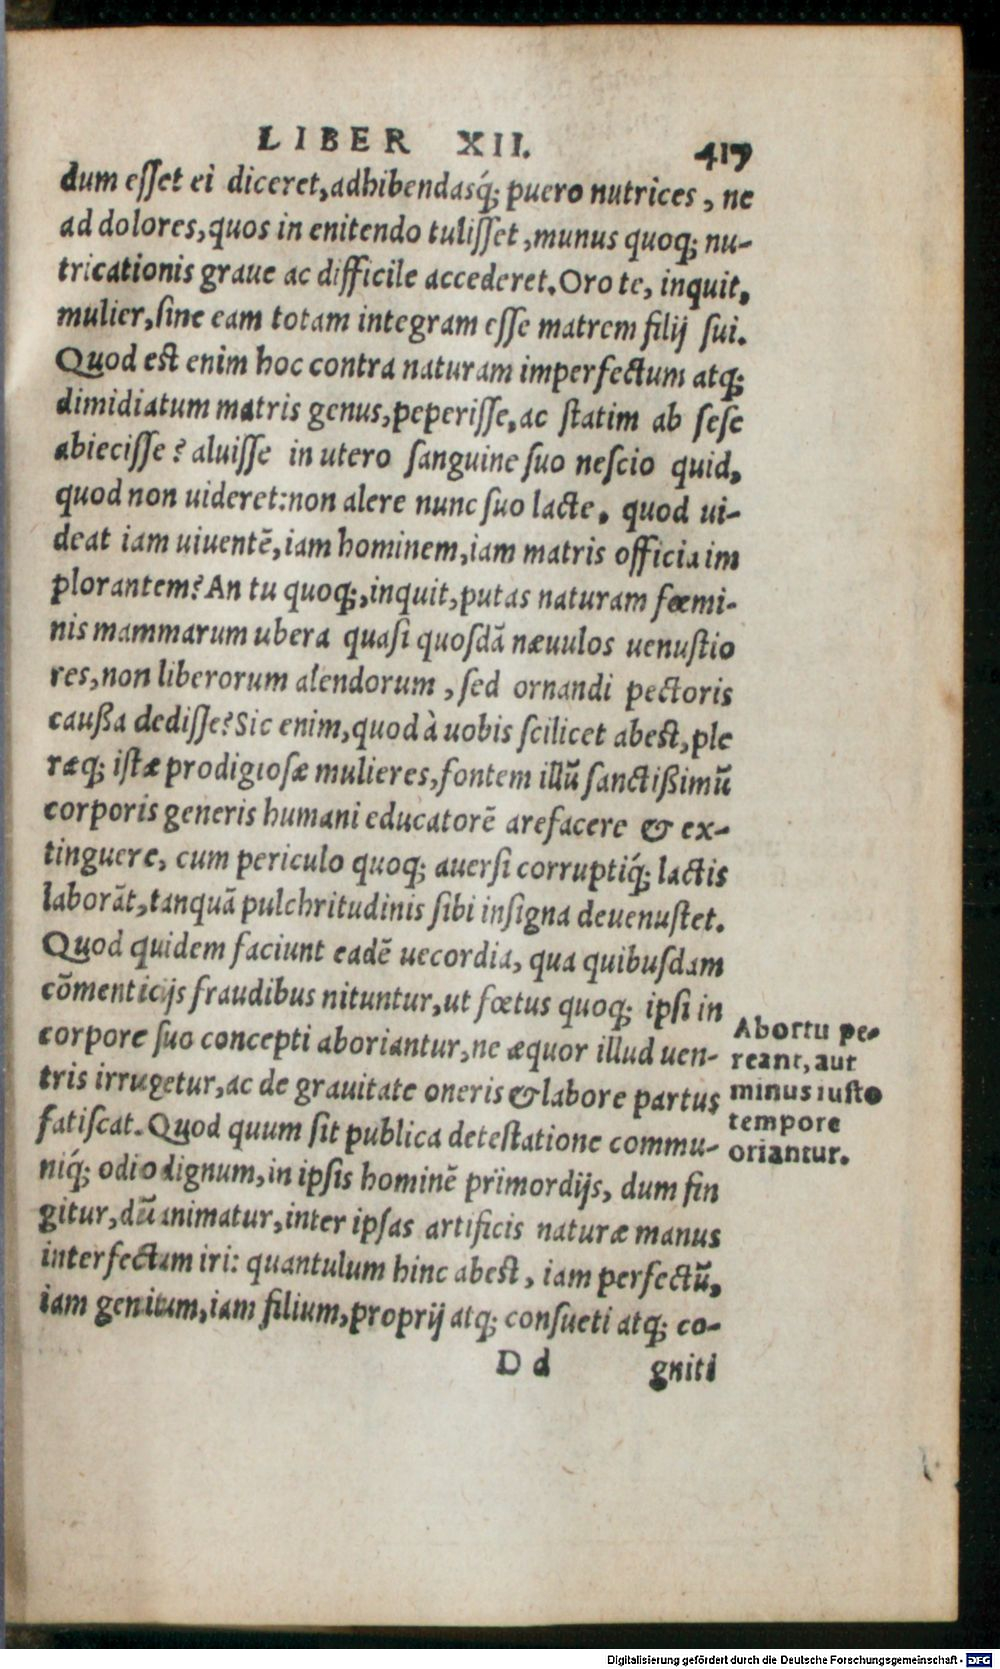 LIBER XII. 417
dum esſet ei diceret, adhibendasq́; puero nutrices, ne
ad dolores, quos in enitendo tuliſſet, munus quoq; nu-
tricationis graue ac difficile accederet. Oro te, inquit,
mulier, ſine eam totam integram eſſe matrem filij ſui.
Quod est enim hoc contra naturam imperfectum atq;
dimidiatum matris genus, peperiſſe, ac ſtatim ab ſeſe
abieciſſe? aluiſſe in utero ſanguine ſuo neſcio quid,
quod non uideret: non alere nunc ſuo lacte, quod ui-
deat iam uiuentē, iam hominem, iam matris officia im
plorantem? An tu quoq;, inquit, putas naturam fœmi-
nis mammarum ubera quaſi quoſdā næuulos uenuſtio
res, non liberorum alendorum, ſed ornandi pectoris
cauſſa dediſſe? Sic enim, quod à uobis ſcilicet abest, ple
ræq; iſtæ prodigioſæ mulieres, fontem illū ſanctiſſimū
corporis generis humani educatorē arefacere & ex-
tinguere, cum periculo quoq; auerſi corruptiq́; lactis
laborāt, tanquā pulchritudinis ſibi inſigna deuenuſtet.
Quod quidem faciunt eadē uecordia, qua quibuſdam
cōmenticijs fraudibus nituntur, ut fœtus quoq; ipſi in
corpore ſuo concepti aboriantur, ne æquor illud uen-
tris irrugetur, ac de grauitate oneris & labore partus
fatiſcat. Quod quum ſit publica deteſtatione commu-
niq́; odio dignum, in ipſis hominē primordijs, dum fin
gitur, dū animatur, inter ipſas artificis naturæ manus
interfectum iri: quantulum hinc abest, iam perfectū,
iam genitum, iam filium, proprij atq; conſueti atq; co-
Dd gniti
Abortu pe-
reant, aut
minus iusto
tempore
oriantur.
Digitalisierung gefördert durch die Deutsche Forschungsgemeinschaft - DFG